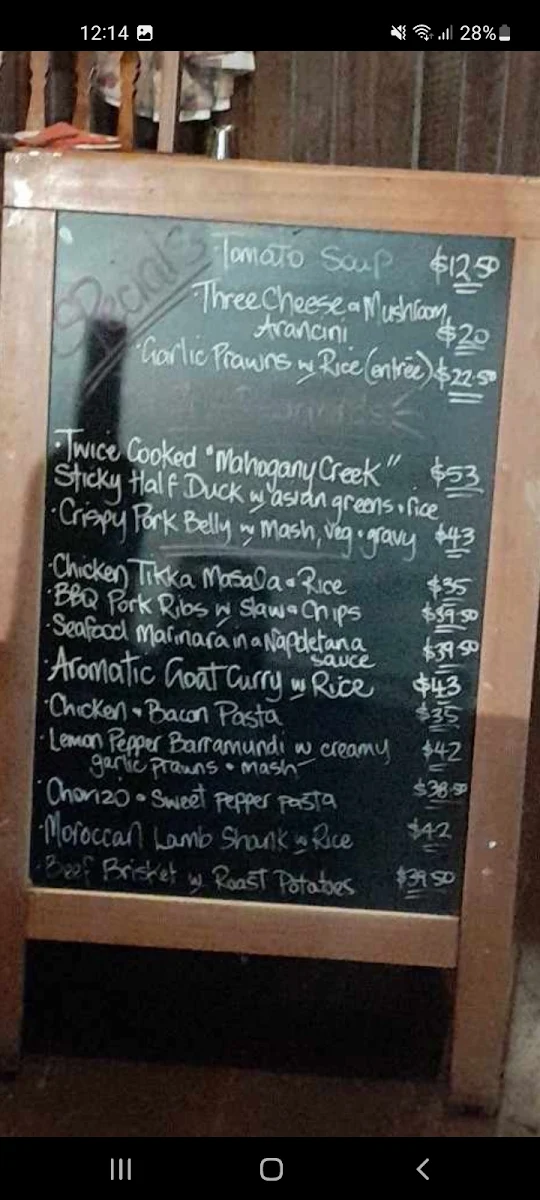 12:14
28%
Specials
·Tomato Soup $12.50
·Three Cheese & Mushroom
Arancini $20
·Garlic Prawns w Rice (entrée) $22.50
·Twice Cooked "Mahogany Creek" $53
Sticky Half Duck w asian greens & rice
·Crispy Pork Belly w Mash, veg & gravy $43
·Chicken Tikka Masala & Rice $35
·BBQ Pork Ribs w Slaw & Chips $39.50
·Seafood Marinara in a Napoletana $39.50
sauce
·Aromatic Goat Curry w Rice $43
·Chicken & Bacon Pasta $35
·Lemon Pepper Barramundi w creamy $42
garlic prawns & mash
·Chorizo & Sweet pepper pasta $38.50
·Moroccan Lamb Shank w Rice $42
·Beef Brisket w Roast Potatoes $39.50